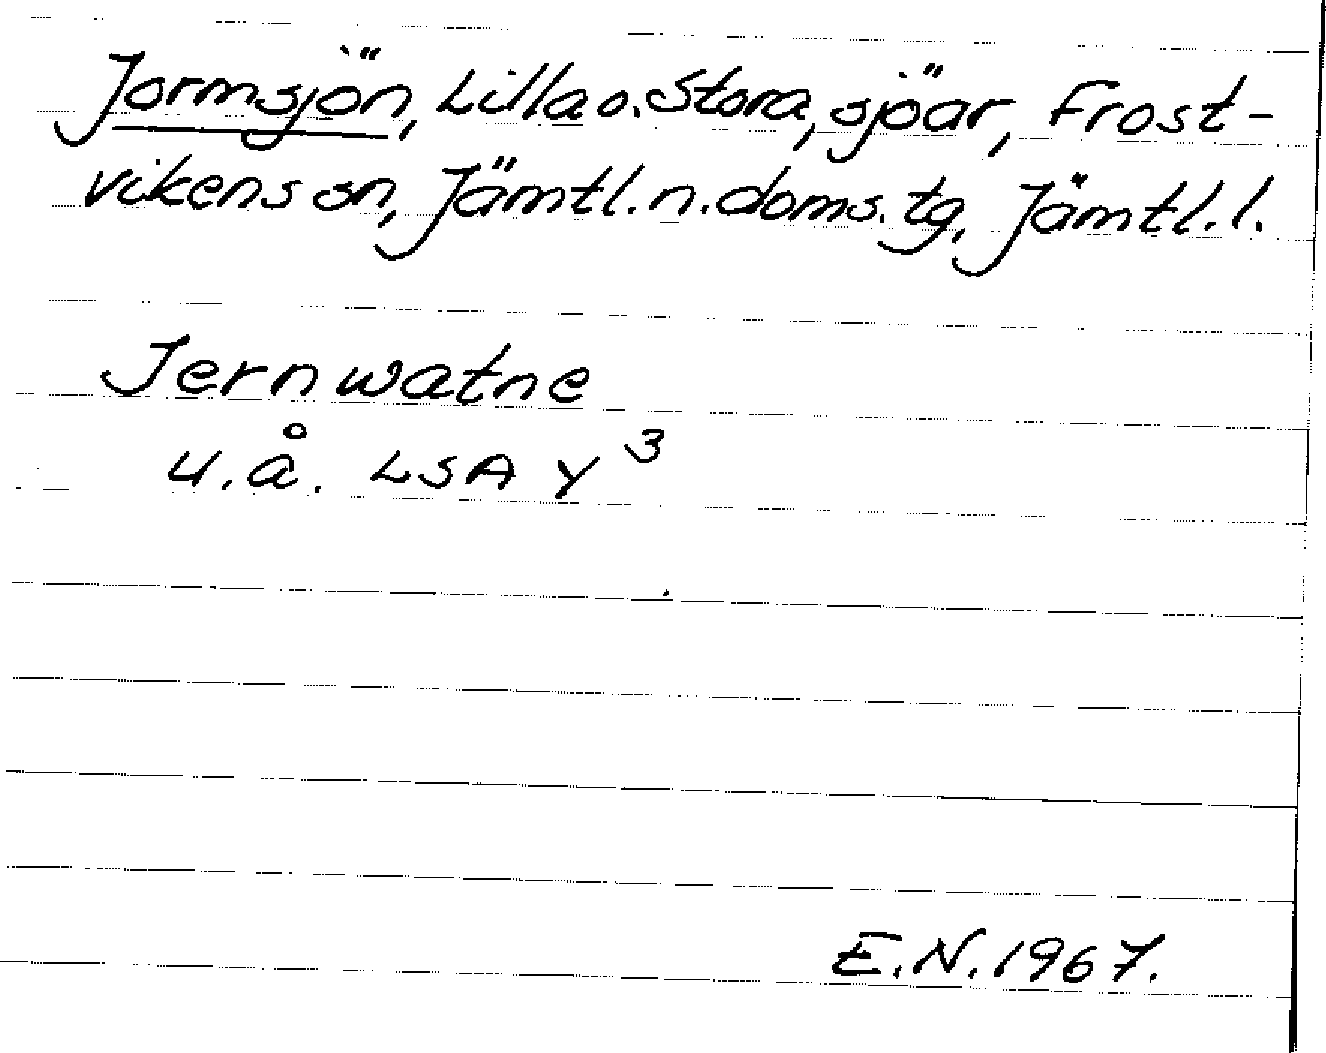 Jormsjön, Lilla o. Stora, sjöar, Frost-
vikens sn, Jämtl. n. doms. tg, Jämtl. l.
Jernwatne
u.å. LSA Y³
E.N. 1967.